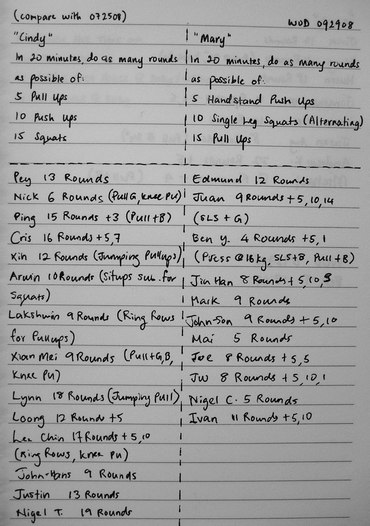 (compare with 072508)
WOD 092908
"Cindy"
In 20 minutes, do as many rounds
as possible of:
5 Pull Ups
10 Push Ups
15 Squats
"Mary"
In 20 minutes, do as many rounds
as possible of:
5 Handstand Push Ups
10 Single Leg Squats (Alternating)
15 Pull Ups
Pey 13 Rounds
Nick 6 Rounds (Pull G, knee PU)
Ping 15 Rounds +3 (Pull+B)
Cris 16 Rounds +5,7
Xin 12 Rounds (Jumping Pullups)
Arwin 10 Rounds (Situps sub. for
Squats)
Lakshwin 9 Rounds (Ring Rows
for Pullups)
Xian Mei 9 Rounds (Pull+G,B,
Knee PU)
Lynn 18 Rounds (Jumping Pull)
Loong 12 Rounds +5
Lee Chin 17 Rounds +5,10
(Ring Rows, knee PU)
John-Hans 9 Rounds
Justin 13 Rounds
Nigel T. 19 Rounds
Edmund 12 Rounds
Juan 9 Rounds +5,10,14
(SLS + G)
Ben Y. 4 Rounds +5,1
(Press @ 16kg, SLS+B, Pull+B)
Jin Han 8 Rounds +5,10,3
Mark 9 Rounds
John-Son 9 Rounds +5,10
Mai 5 Rounds
Joe 8 Rounds +5,5
JW 8 Rounds +5,10,1
Nigel C. 5 Rounds
Ivan 11 Rounds +5,10